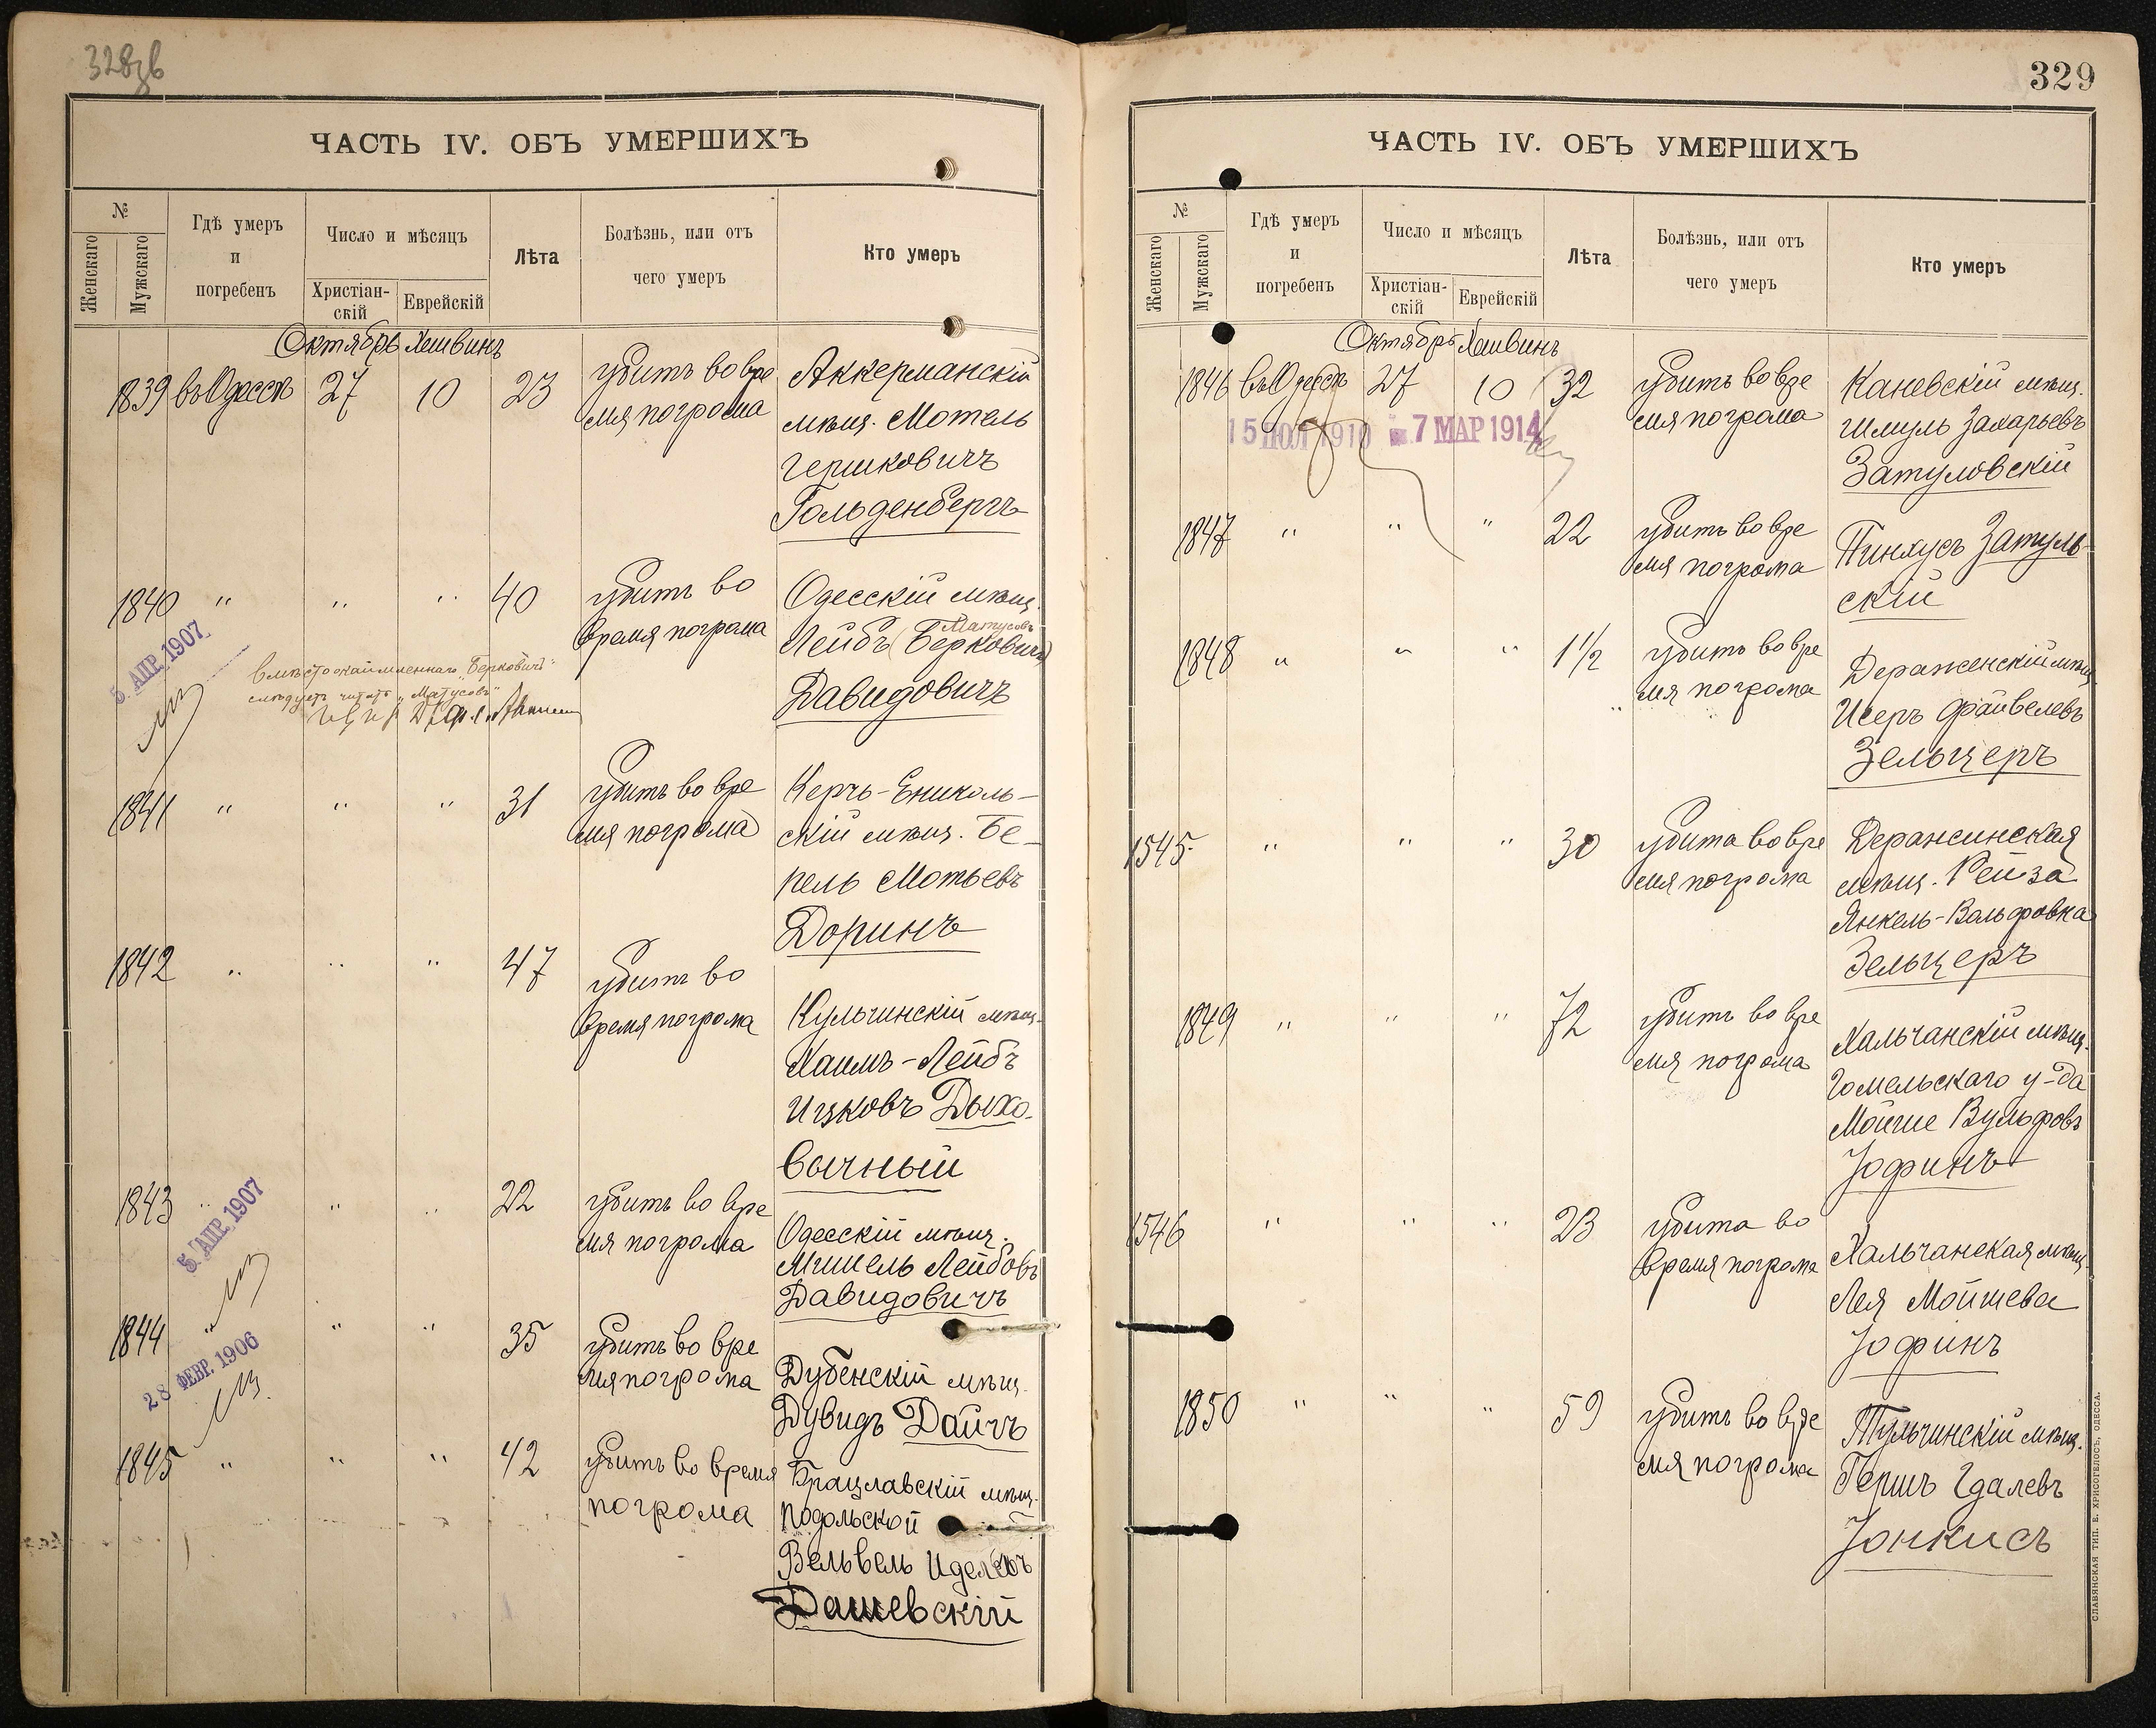 328зв
ЧАСТЬ IV. ОБЪ УМЕРШИХЪ
№
Женскаго
Мужскаго
Гдѣ умеръ
и
погребенъ
Число и мѣсяцъ
Христіан-
скій
Еврейскій
Лѣта
Болѣзнь, или отъ
чего умеръ
Кто умеръ
Октябрь Хешвинъ
1839 въ Одессѣ 27 10 23 убитъ во вре
мя погрома
Аккерманскій
мѣщ. Мотель
Гершковичъ
Гольденбергъ
1840 " " " 40 убитъ во
время погрома
Одесскій мѣщ.
Матусовъ
Лейбъ (Берковичъ)
Давидовичъ
5. АПР. 1907
вмѣсто окаймленнаго "Берковичъ"
слѣдуетъ читать "Матусовъ"
1841 " " " 31 убитъ во вре
мя погрома
Керчь-Ениколь-
скій мѣщ. Бе-
рель Мотьевъ
Доринъ
1842 " " " 47 убитъ во
время погрома
Кульчинскій мѣщ.
Хаимъ-Лейбъ
Ицковъ Дыхо-
вычный
1843 " " " 22 убитъ во вре
мя погрома
Одесскій мѣщ.
Мишель Лейбовъ
Давидовичъ
5. АПР. 1907
1844 " " " 35 убитъ во вре
мя погрома
Дубенскій мѣщ.
Дувидъ Дайчъ
28 ФЕВР. 1906
1845 " " " 42 убитъ во время
погрома
Брацлавскій мѣщ.
Подольской
Вельвель Иделевъ
Дашевскій
329
ЧАСТЬ IV. ОБЪ УМЕРШИХЪ
№
Женскаго
Мужскаго
Гдѣ умеръ
и
погребенъ
Число и мѣсяцъ
Христіан-
скій
Еврейскій
Лѣта
Болѣзнь, или отъ
чего умеръ
Кто умеръ
Октябрь Хешвинъ
1846 въ Одессѣ 27 10 32 убитъ во вре
мя погрома
Каневскій мѣщ.
Шмуль Захарьевъ
Затуловскій
15 ІЮЛ 1910 7 МАР 1914
1847 " " " 22 убитъ во вре
мя погрома
Пинхусъ Затуль-
скій
1848 " " " 1 1/2 убитъ во вре
мя погрома
Дераженскій мѣщ.
Исеръ Файвелевъ
Зельцеръ
1545 " " " 30 убита во вре
мя погрома
Деражинская
мѣщ. Рейза
Янкель-Вольфовна
Зельцеръ
1849 " " " 72 убитъ во вре
мя погрома
Хальчанскій мѣщ.
Гомельскаго у-да
Мойше Вульфовъ
Іофинъ
1546 " " " 23 убита во
время погрома
Хальчанская мѣщ.
Лея Мойшева
Іофинъ
1850 " " " 59 убитъ во вре
мя погрома
Тульчинскій мѣщ.
Гершъ Гдалевъ
Іонкисъ
СЛАВЯНСКАЯ ТИП. Е. ХРИСОГЕЛОСЪ, ОДЕССА.